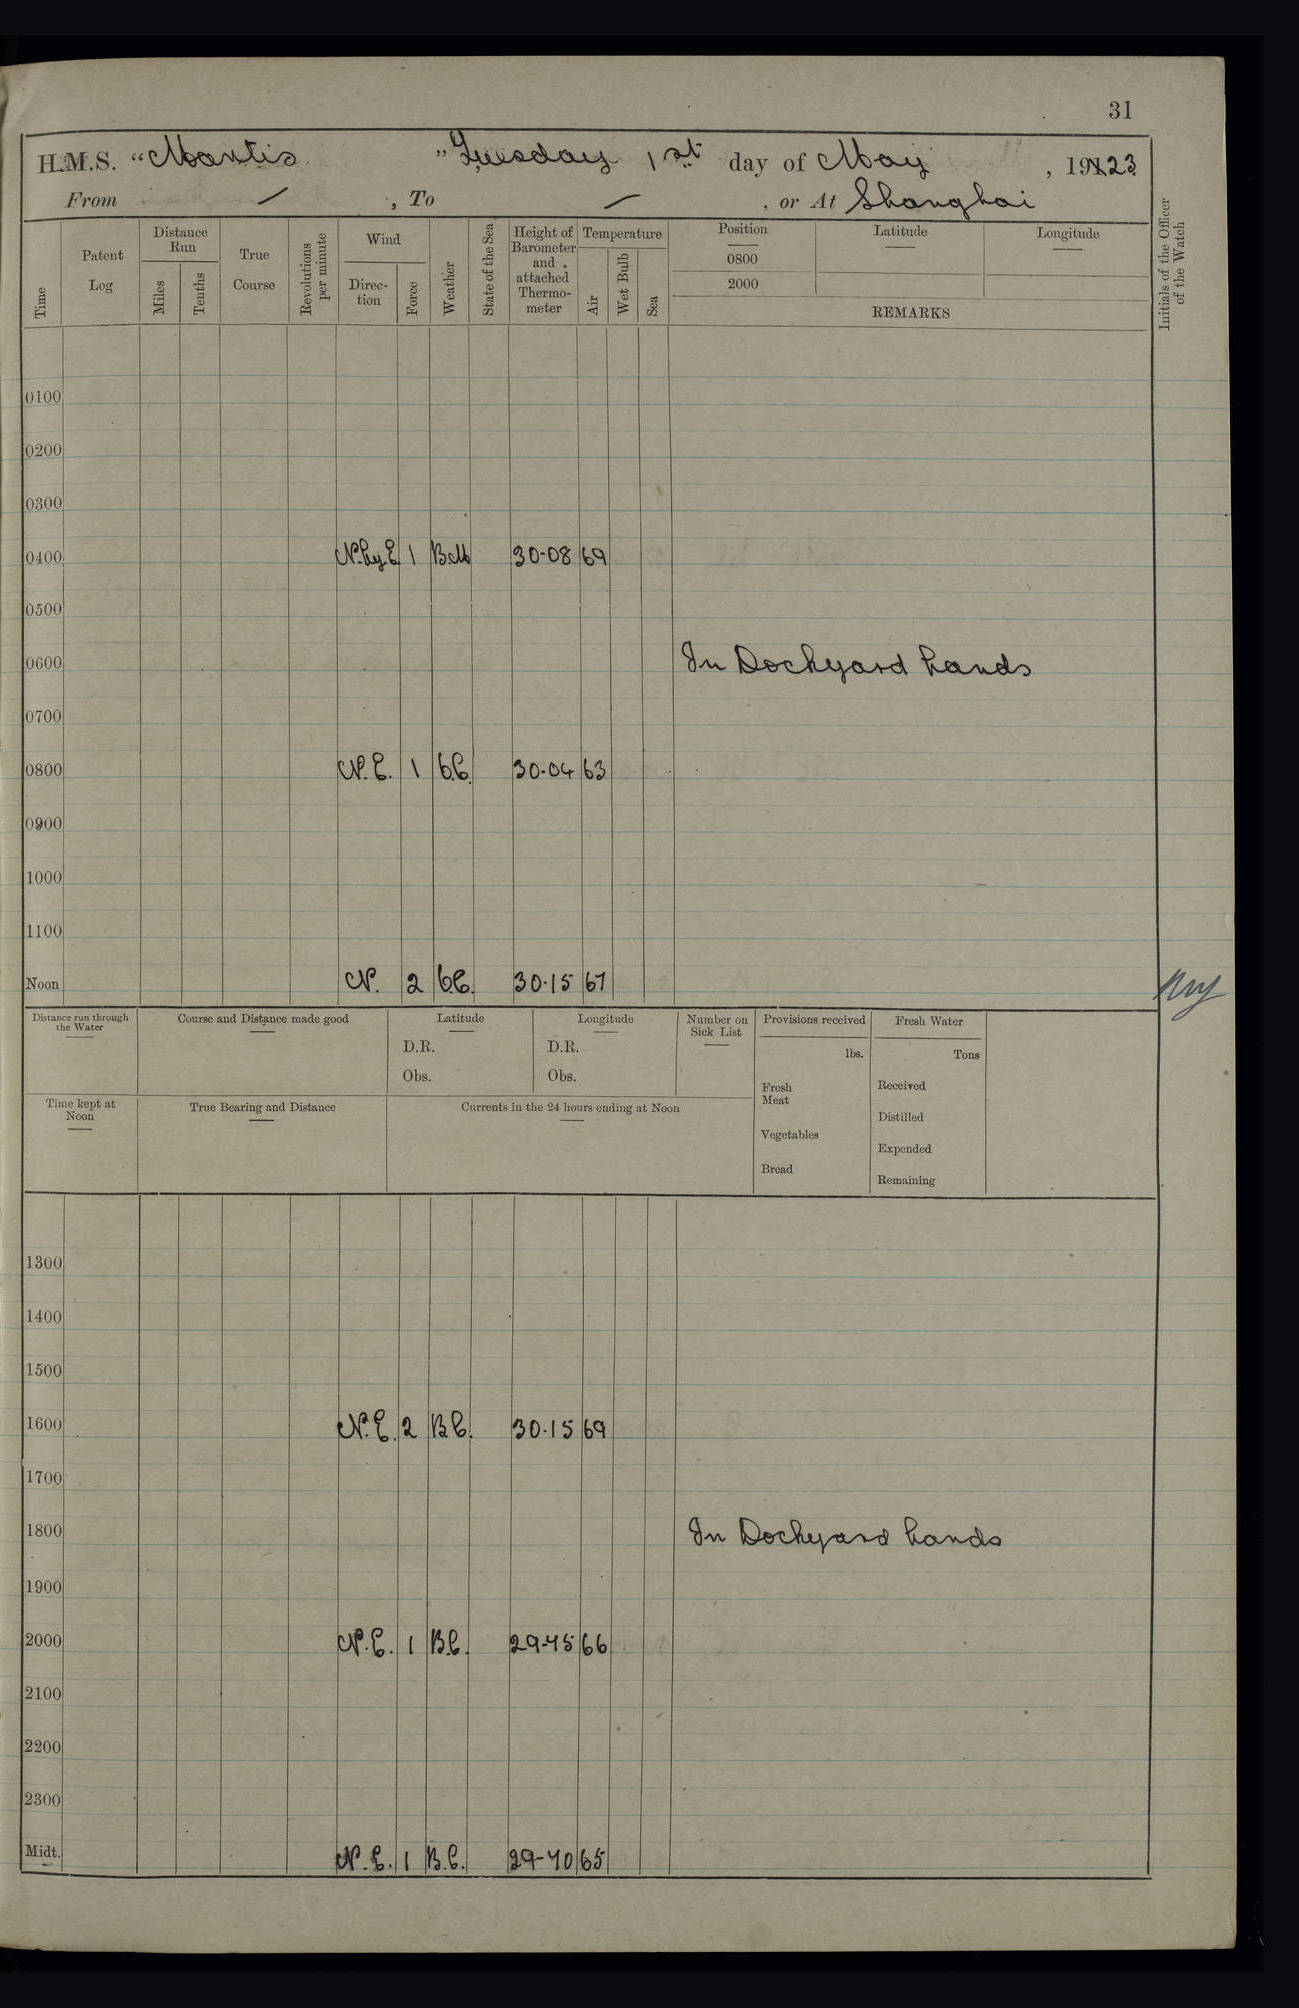 31
H.M.S. "Mantis" Tuesday 1st day of May, 1923
From / , To / , or At Shanghai
Time
Patent Log
Distance Run
Miles
Tenths
True Course
Revolutions per minute
Wind
Direc-tion
Force
Weather
State of the Sea
Height of Barometer and attached Thermo-meter
Temperature
Air
Wet Bulb
Sea
Position
Latitude
Longitude
0800
2000
REMARKS
Initials of the Officer of the Watch
0100
0200
0300
0400 N.by.E 1 30-08 69
0500
0600 In Dockyard hands
0700
0800 N.E. 1 b.C. 30-04 63
0900
1000
1100
Noon N. 2 b.C. 30-15 67
Distance run through the Water
Course and Distance made good
Latitude
D.R.
Obs.
Longitude
D.R.
Obs.
Number on Sick List
Provisions received
lbs.
Fresh Meat
Vegetables
Bread
Fresh Water
Tons
Received
Distilled
Expended
Remaining
Time kept at Noon
True Bearing and Distance
Currents in the 24 hours ending at Noon
1300
1400
1500
1600 N.E. 2 B.C. 30-15 69
1700
1800 In Dockyard hands
1900
2000 N.E. 1 B.C. 29-45 66
2100
2200
2300
Midt. N.E. 1 B.C. 29-40 65